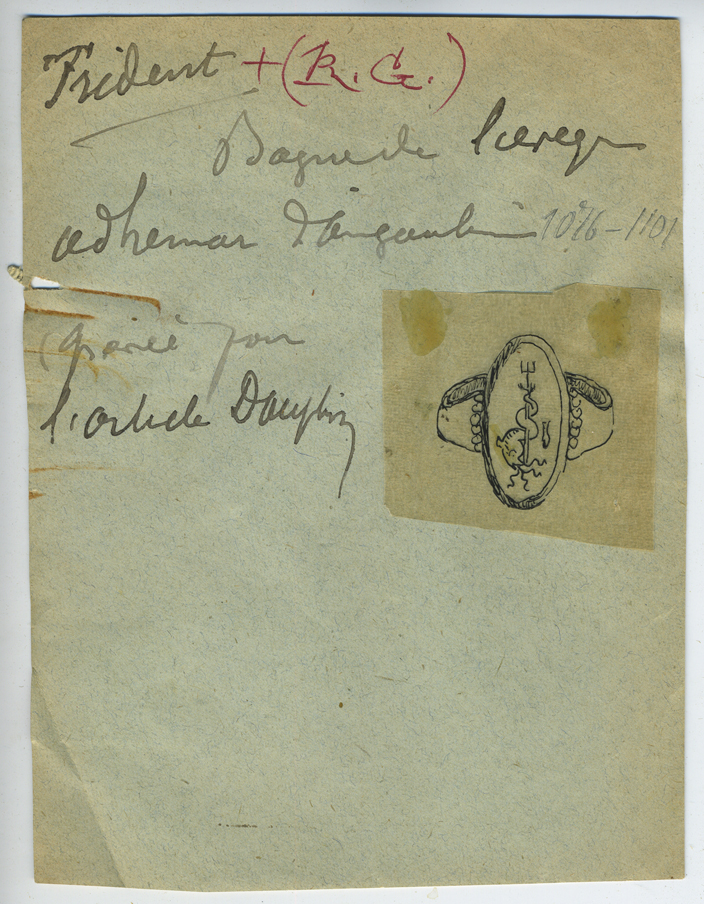 Trident + (R. G.)
Bague de l'evêque
adhemar d'angoulême 1076-1101
gravée pour
l'article Dauphin